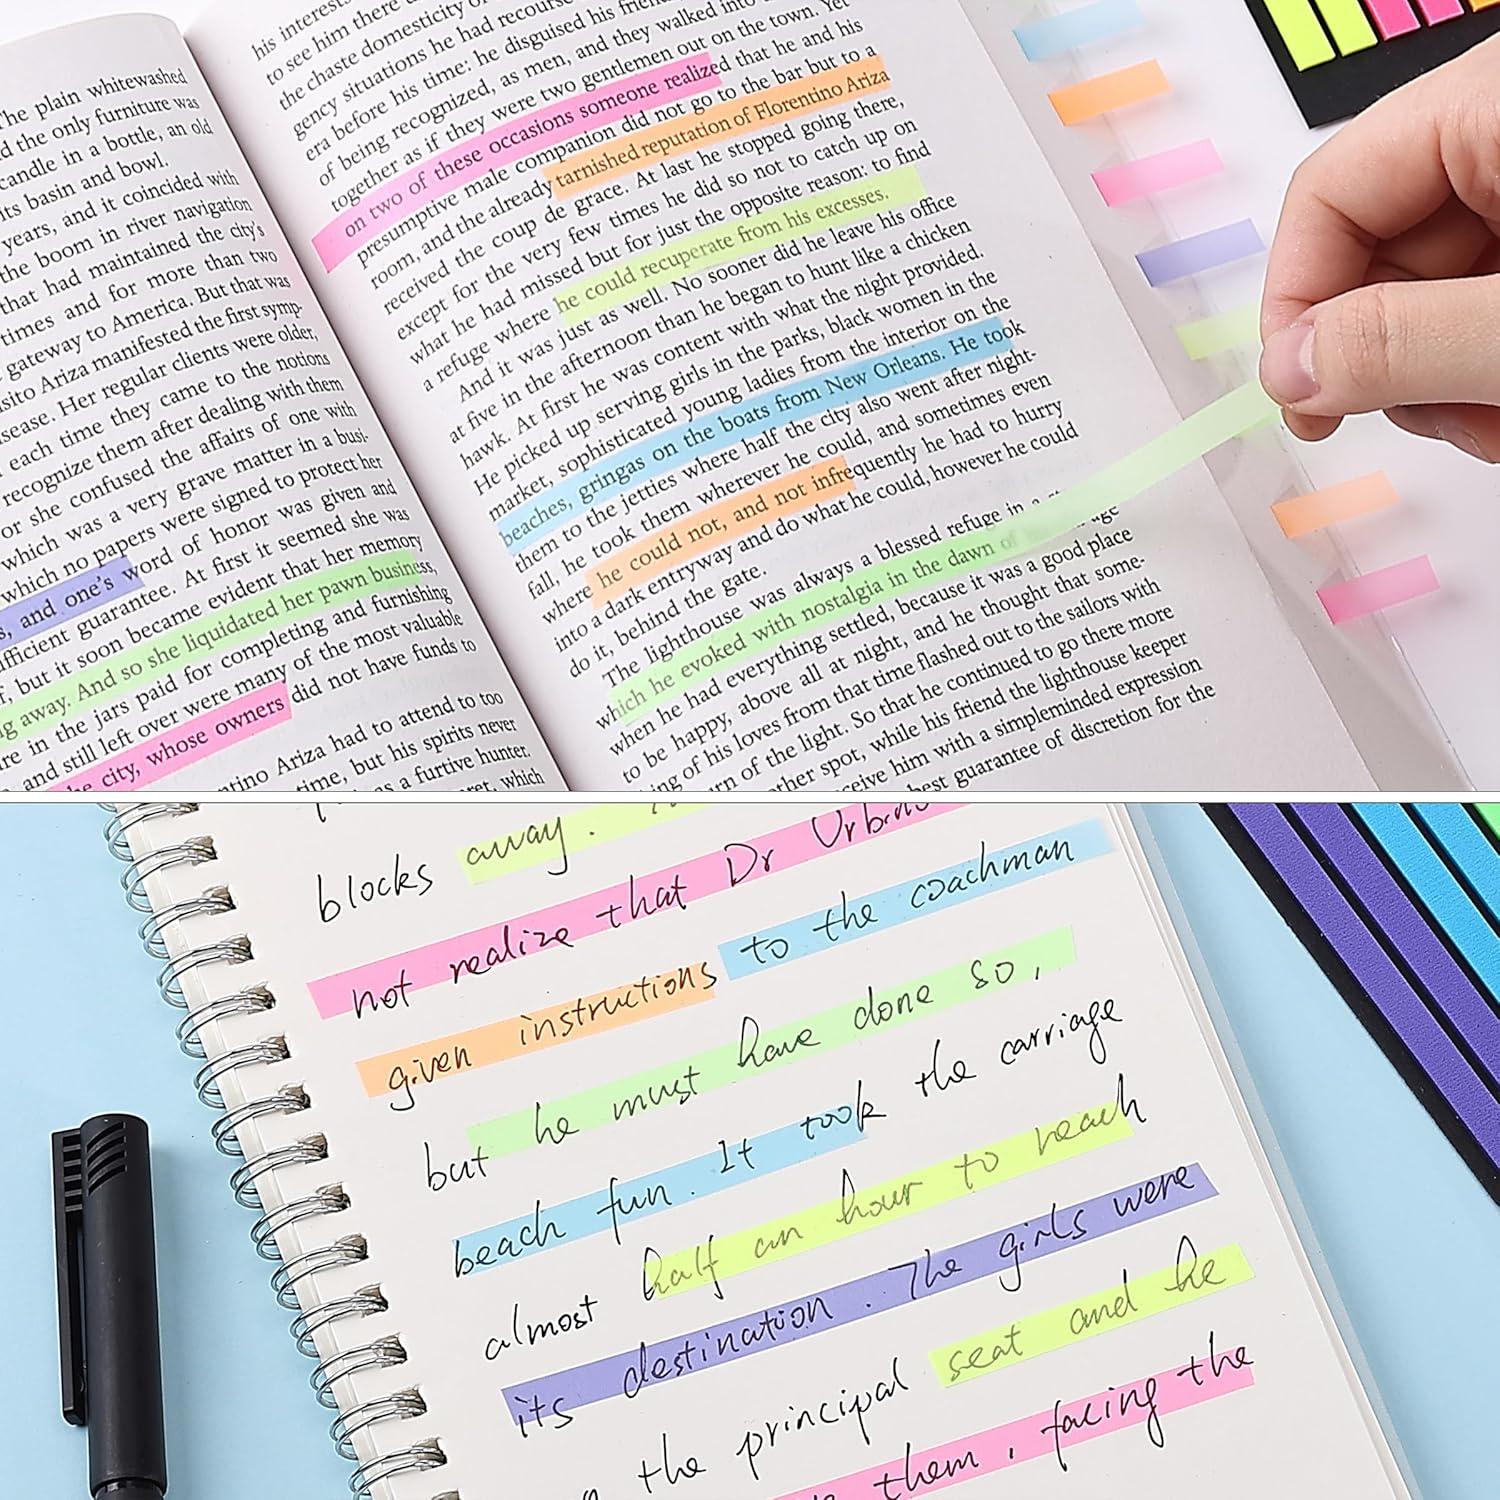 The plain whitewashed
d the only furniture was
candle in a bottle, an old
its basin and bowl.
years, and it coincided with
the boom in river navigation
that had maintained the city's
times and for more than two
gateway to America. But that was
sito Ariza manifested the first symp-
sease. Her regular clients were older,
each time they came to the notions
recognize them after dealing with them
or she confused the affairs of one with
which was a very grave matter in a busi-
which no papers were signed to protect her
s, and one's word of honor was given and
fficient guarantee. At first it seemed she was
f, but it soon became evident that her memory
ng away. And so she liquidated her pawn business,
re in the jars paid for completing and furnishing
and still left over were many of the most valuable
he city, whose owners did not have funds to
ntino Ariza had to attend to too
time, but his spirits never
as a furtive hunter.
ret, which
his interests
to see him there
the chaste domesticity of
gency situations he had recourse
era before his time: he disguised his friend
of being recognized, as men, and they walked into
together as if they were two gentlemen out on the town. Yet
on two of these occasions someone realized that he and his
presumptive male companion did not go to the bar but to a
room, and the already tarnished reputation of Florentino Ariza
received the coup de grace. At last he stopped going there,
except for the very few times he did so not to catch up on
what he had missed but for just the opposite reason: to find
a refuge where he could recuperate from his excesses.
And it was just as well. No sooner did he leave his office
at five in the afternoon than he began to hunt like a chicken
hawk. At first he was content with what the night provided.
He picked up serving girls in the parks, black women in the
market, sophisticated young ladies from the interior on the
beaches, gringas on the boats from New Orleans. He took
them to the jetties where half the city also went after night-
fall, he took them wherever he could, and sometimes even
where he could not, and not infrequently he had to hurry
into a dark entryway and do what he could, however he could
do it, behind the gate.
The lighthouse was always a blessed refuge in a
which he evoked with nostalgia in the dawn of
when he had everything settled, because it was a good place
to be happy, above all at night, and he thought that some-
ing of his loves from that time flashed out to the sailors with
urn of the light. So that he continued to go there more
other spot, while his friend the lighthouse keeper
ceive him with a simpleminded expression
best guarantee of discretion for the
blocks away.
not realize that Dr Urbino
given instructions to the coachman
but he must have done so,
beach fun. It took the carriage
almost half an hour to reach
its destination. The girls were
the principal seat and he
them, facing the